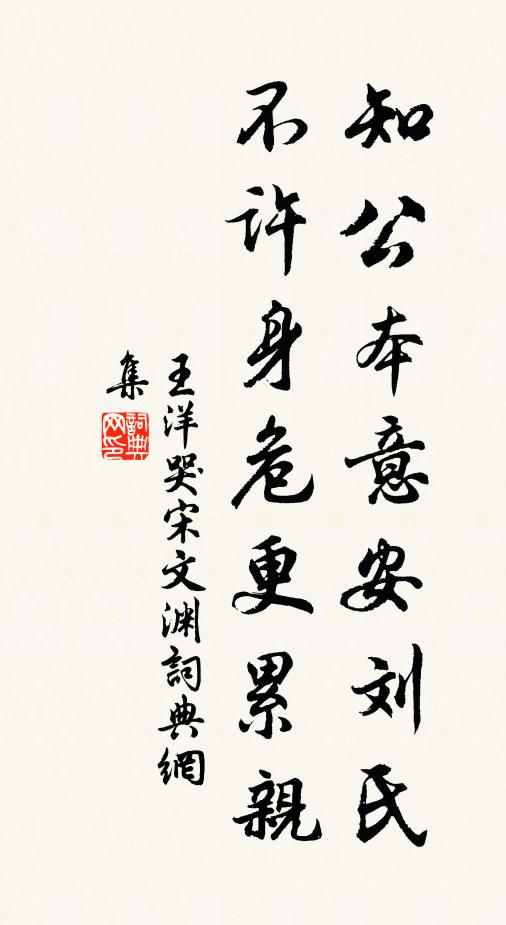 知公本意安刘氏
不許身危更累親
王洋哭宋文渊詞典網
集
詞典
网印